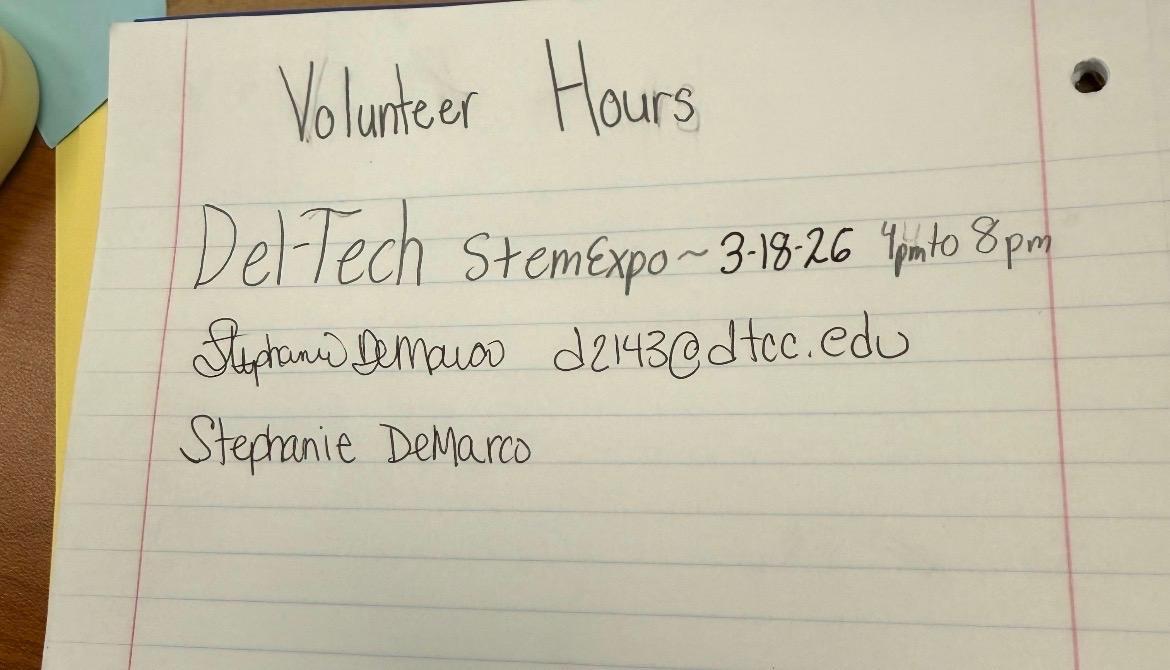 Volunteer Hours
Del-Tech StemExpo ~ 3-18-26 4pm to 8pm
Stephanie DeMarco d2143@dtcc.edu
Stephanie DeMarco